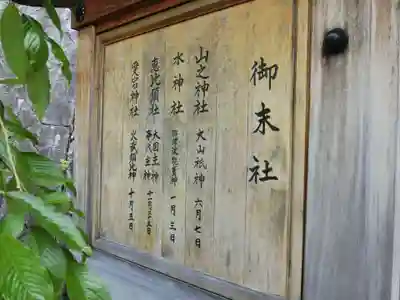 御末社
山之神社 大山祇神 六月七日
水神社 一月三日
恵比須社 大国主神 事代主神
愛宕神社 火武須比神 十月五日